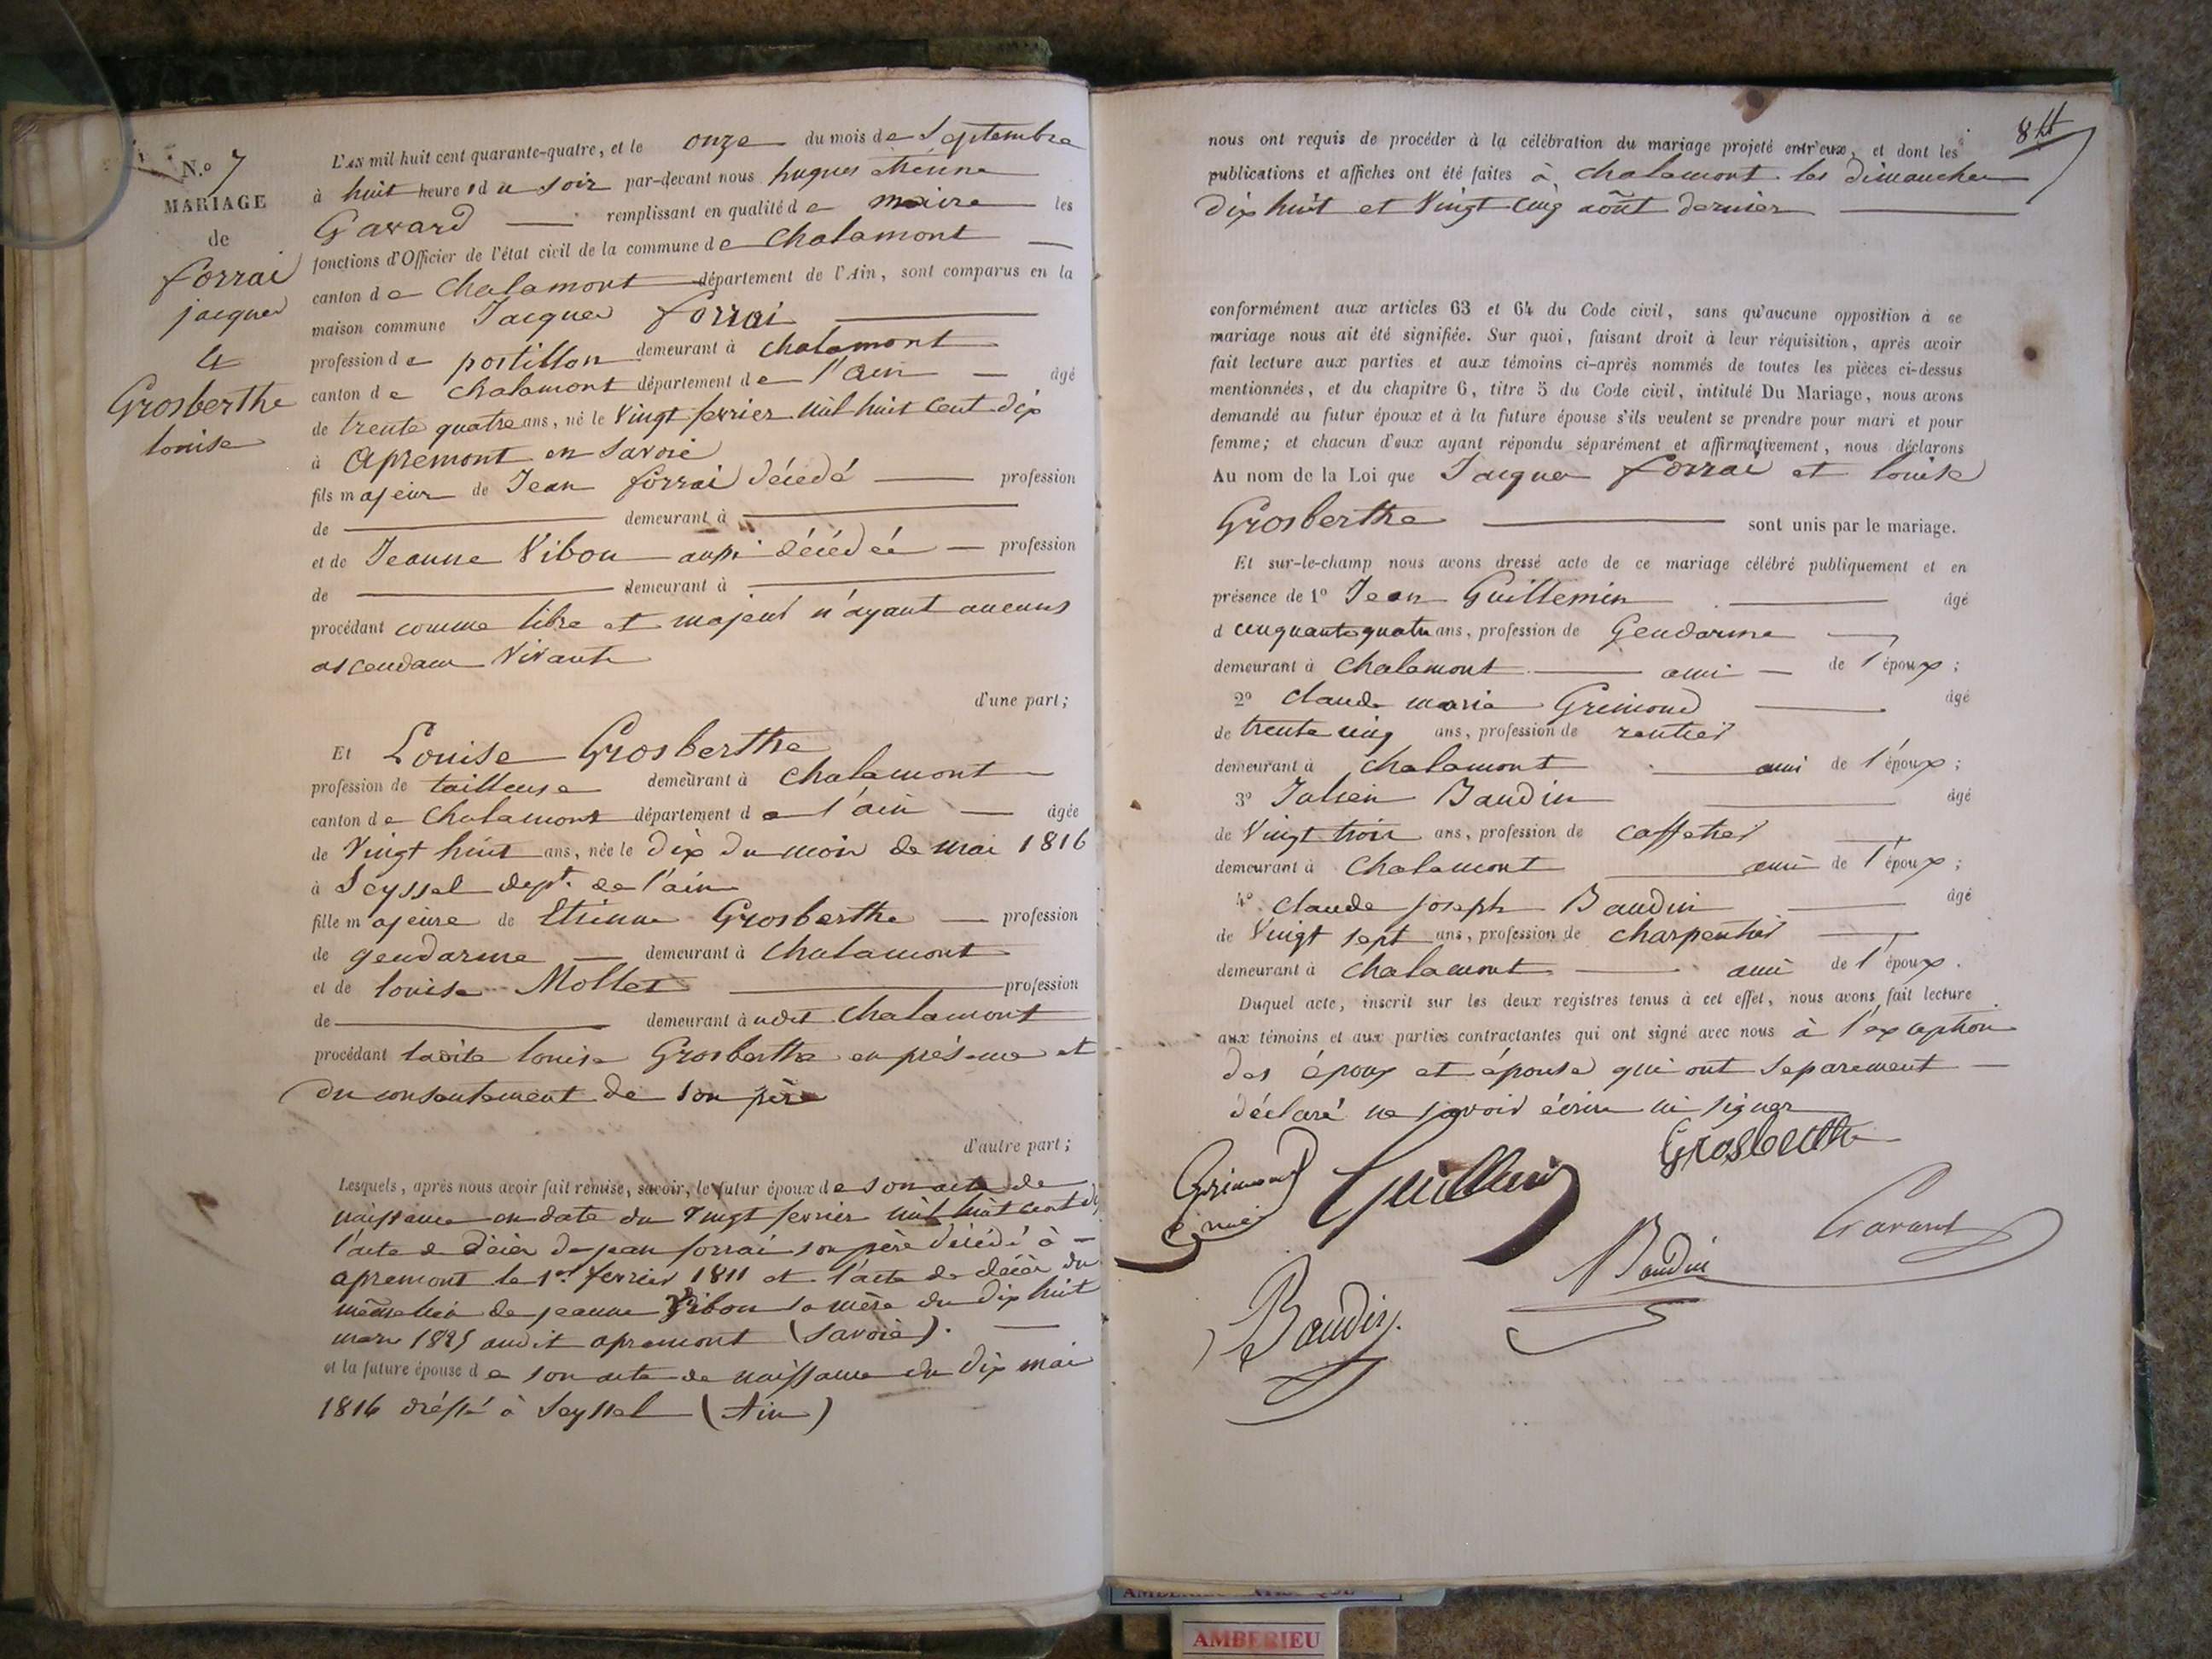 N.º 7
MARIAGE
de
forrai
jacques
&
Grosberthe
louise
L'AN mil huit cent quarante-quatre, et le onze du mois de Septembre
à huit heures du soir par-devant nous hugues étienne
Gavard remplissant en qualité de maire les
fonctions d'Officier de l'état civil de la commune de Chalamont
canton de Chalamont département de l'Ain, sont comparus en la
maison commune Jacques forrai
profession de postillon demeurant à chalamont
canton de chalamont département de l'ain âgé
de trente quatre ans, né le Vingt fevrier mil huit cent dix
à Apremont en Savoie
fils majeur de Jean forrai décédé profession
de demeurant à
et de Jeanne Vibou aussi décédée profession
de demeurant à
procédant comme libre et majeur n'ayant aucuns
ascendans Vivants
d'une part;
Et Louise Grosberthe
profession de tailleuse demeurant à Chalamont
canton de Chalamont département de l'ain âgée
de Vingt huit ans, née le dix du mois de mai 1816
à Seyssel dept. de l'ain
fille majeure de Etienne Grosberthe profession
de gendarme demeurant à Chalamont
et de louise Mollet profession
de demeurant à udit Chalamont
procédant ladite louise Grosberthe en présence et
du consentement de son père
d'autre part;
Lesquels, après nous avoir fait remise, savoir, le futur époux de son acte de
naissance en date du vingt fevrier mil huit cent dix
l'acte de décès de jean forrai son père décédé à
apremont le 1er fevrier 1811 et l'acte de décès du
même lieu de jeanne Vibou sa mère du dix huit
mars audit apremont (Savoie).
et la future épouse de son acte de naissance du dix mai
1816 dréssé à Seyssel (Ain)
8
nous ont requis de procéder à la célébration du mariage projeté entr'eux, et dont les
publications et affiches ont été faites à Chalamont les dimanches
dix huit et Vingt cinq août dernier
conformément aux articles 63 et 64 du Code civil, sans qu'aucune opposition à ce
mariage nous ait été signifiée. Sur quoi, faisant droit à leur réquisition, après avoir
fait lecture aux parties et aux témoins ci-après nommés de toutes les pièces ci-dessus
mentionnées, et du chapitre 6, titre 5 du Code civil, intitulé Du Mariage, nous avons
demandé au futur époux et à la future épouse s'ils veulent se prendre pour mari et pour
femme; et chacun d'eux ayant répondu séparément et affirmativement, nous déclarons
Au nom de la Loi que Jacques forrai et louise
Grosberthe sont unis par le mariage.
Et sur-le-champ nous avons dressé acte de ce mariage célébré publiquement et en
présence de 1º Jean Guillemin âgé
d cinquante quatre ans, profession de Gendarme
demeurant à Chalamont ami de l'époux;
2º Claude marie Grimond âgé
de trente cinq ans, profession de rentier
demeurant à Chalamont ami de l'époux;
3º Julien Baudin âgé
de Vingt trois ans, profession de caffetier
demeurant à Chalamont ami de l'époux;
4º Claude joseph Baudin âgé
de Vingt sept ans, profession de charpentier
demeurant à Chalamont ami de l'époux.
Duquel acte, inscrit sur les deux registres tenus à cet effet, nous avons fait lecture
aux témoins et aux parties contractantes qui ont signé avec nous à l'exception
des époux et épouse qui ont separement
déclaré ne savoir écrire ni signer
Grosberthe
Grimond
Guillemin
Gavard
Baudin
Baudin
AMBERIEU